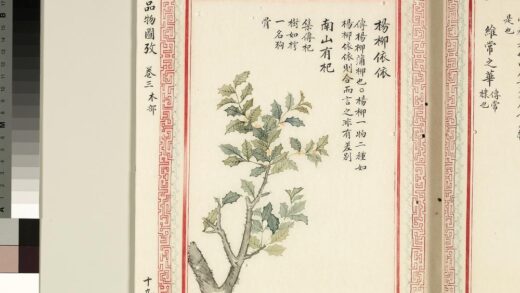 是也
維常之華
傳常
棣也
楊柳依依
傳楊柳蒲柳也○楊柳一物二種如
楊柳依依則合而言之非有差別
南山有杞
集傳杞
樹如樗
一名狗
骨
品物圖攷 卷三木部 十